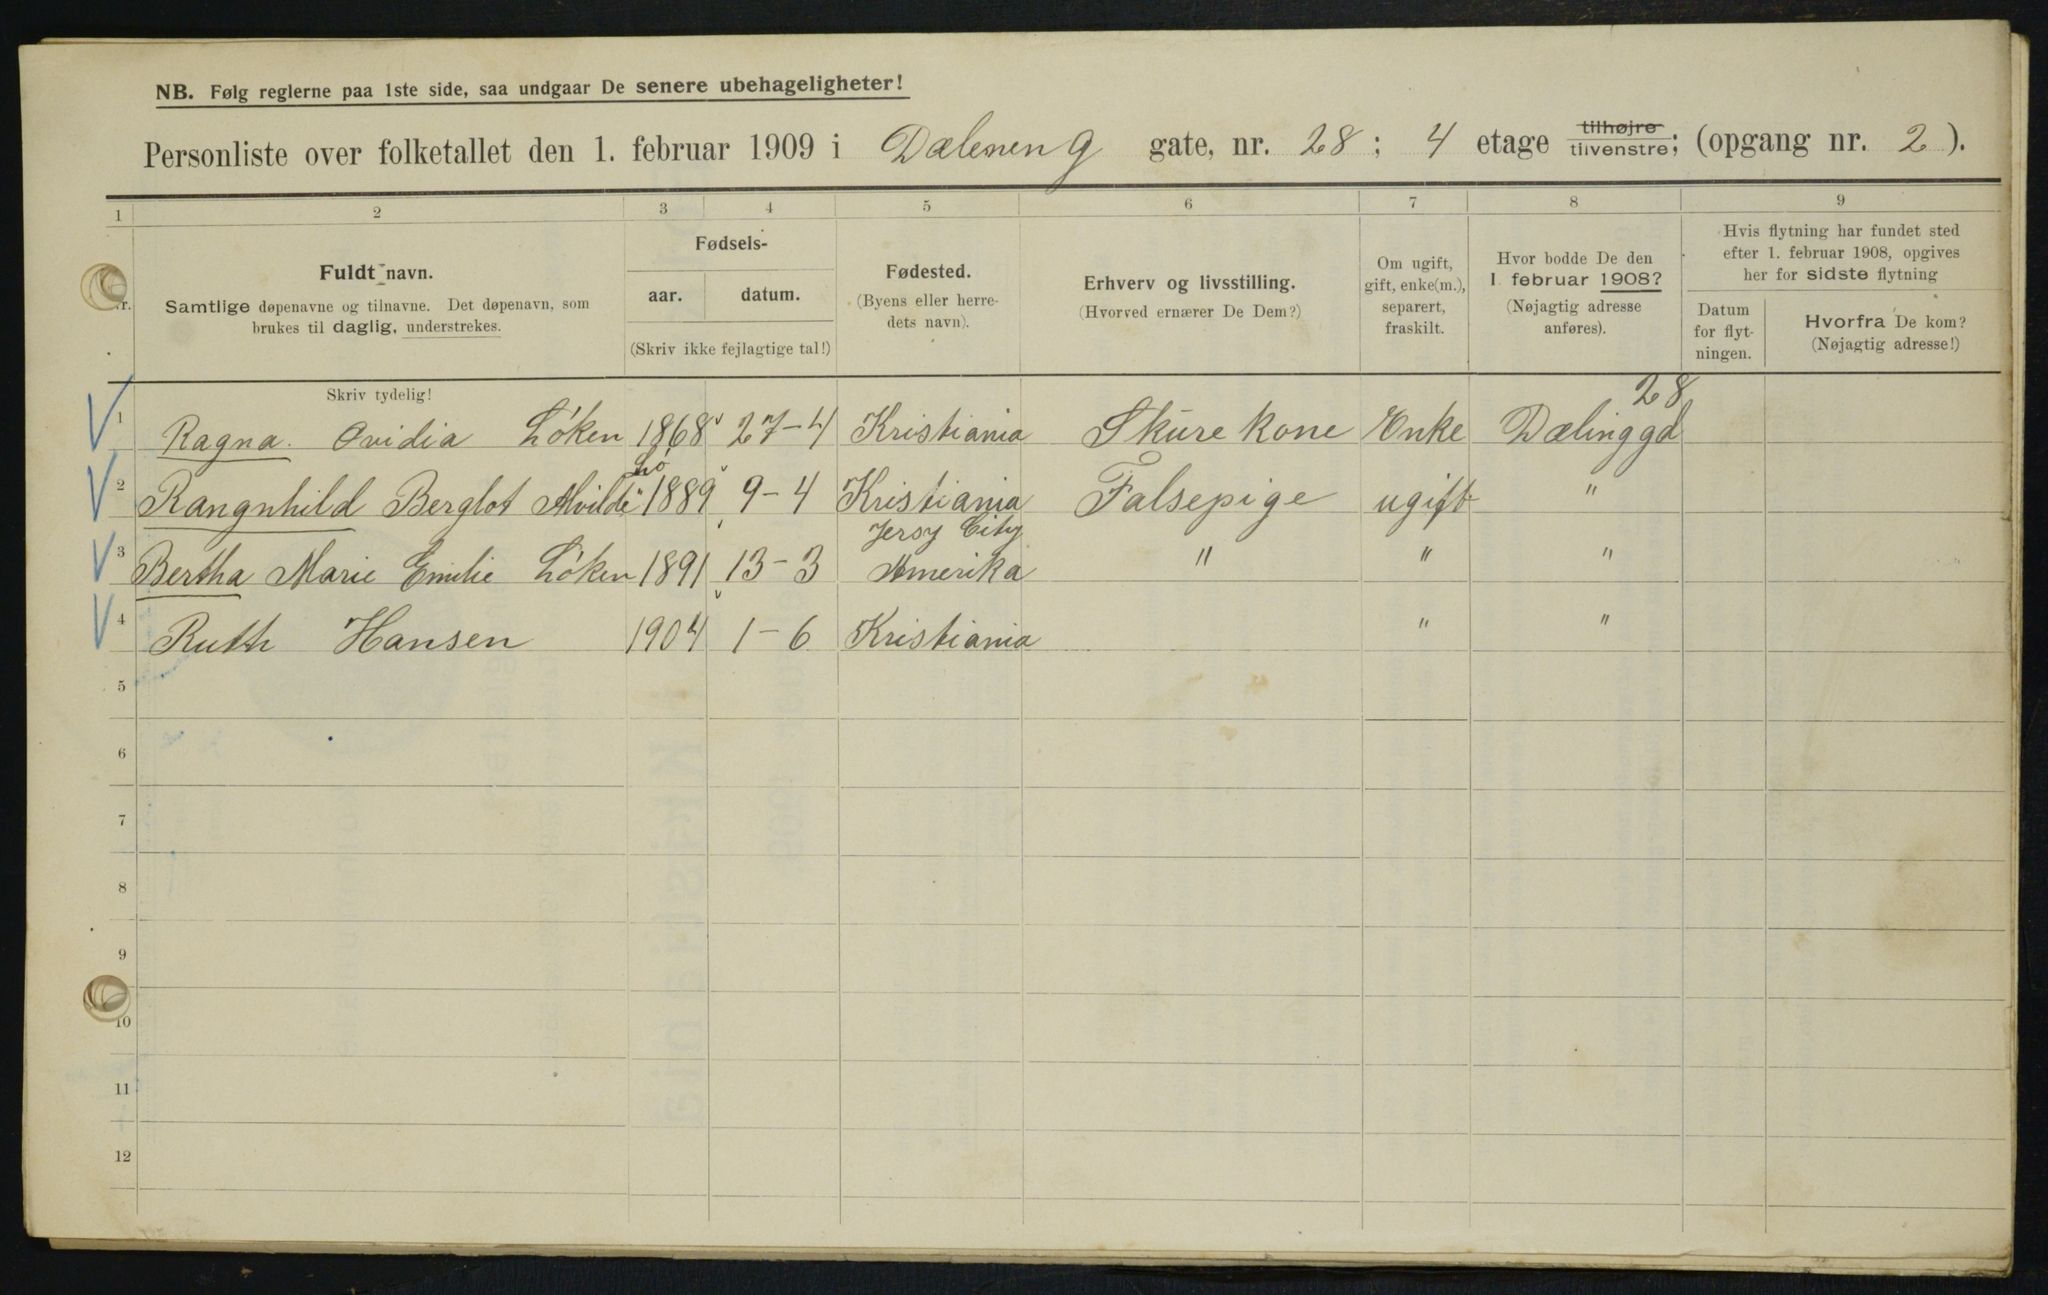 NB. Følg reglerne paa 1ste side, saa undgaar De senere ubehageligheter!
Personliste over folketallet den 1. februar 1909 i Dælenen g gate, nr. 28 ; 4 etage tilhøjre tilvenstre; (opgang nr. 2 ).
1 2 3 4 5 6 7 8 9
Fuldt navn.
Samtlige døpenavne og tilnavne. Det døpenavn, som
brukes til daglig, understrekes.
Fødsels-
aar. datum.
(Skriv ikke fejlagtige tal!)
Fødested.
(Byens eller herre-
dets navn).
Erhverv og livsstilling.
(Hvorved ernærer De Dem?)
Om ugift,
gift, enke(m.),
separert,
fraskilt.
Hvor bodde De den
1 februar 1908?
(Nøjagtig adresse
anføres).
Hvis flytning har fundet sted
efter 1. februar 1908, opgives
her for sidste flytning
Datum
for flyt-
ningen.
Hvorfra De kom?
(Nøjagtig adresse!)
Skriv tydelig!
28
1 Ragna. Ovidia Løken 1868 27-4 Kristiania Skure kone Enke Dælinggd
Lø
2 Rangnhild Berglot Alvilde 1889 9-4 Kristiania Falsepige ugift "
Jersy City
3 Bertha Marie Emilie Løken 1891 13-3 Amerika " " "
4 Ruth Hansen 1904 1-6 Kristiania " "
5
6
7
8
9
10
11
12